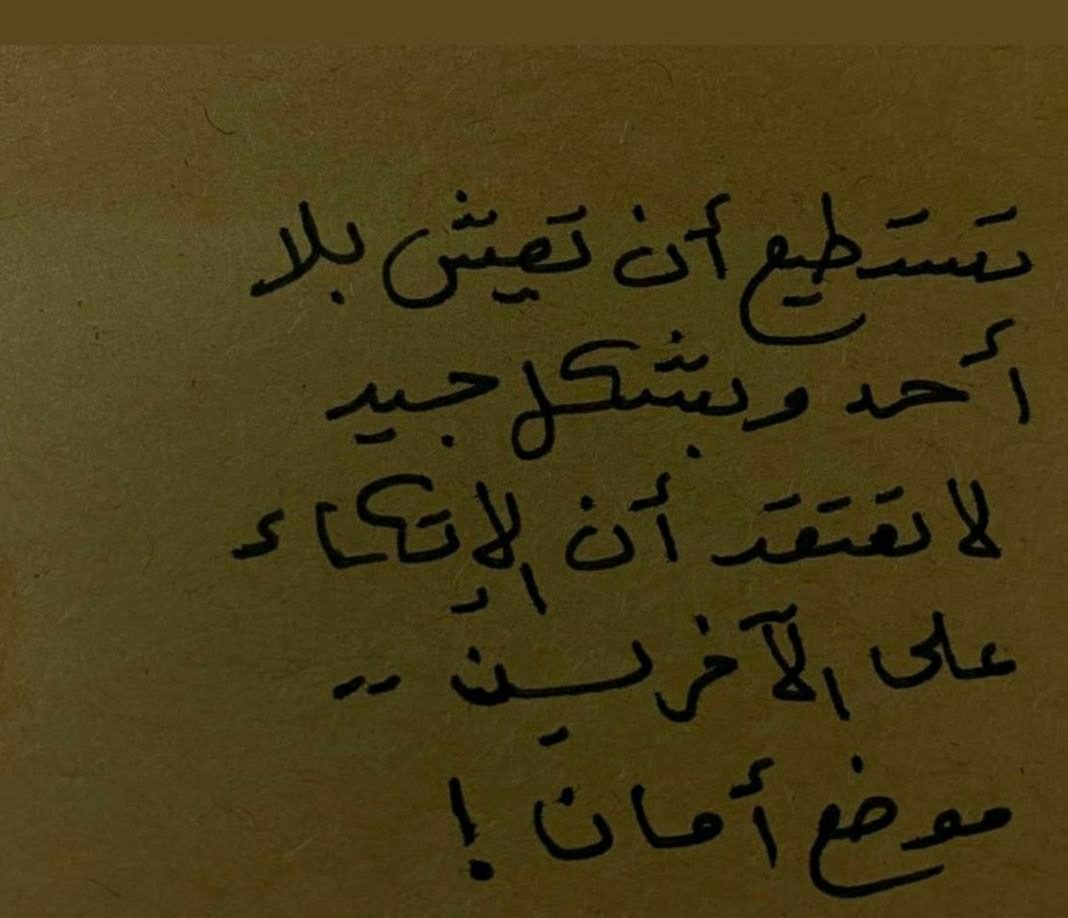 تستطيع أن تعيش بلا
أحد وبشكل جيد
لا تعتقد أن الإتكاء
على الآخرين --
موضع أمان !